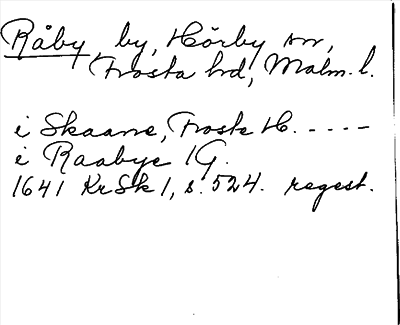 Råby, by, Hörby sn,
Frosta hd, Malm. l.
i Skaane, Froste H. - - - - -
i Raabye 1G.
1641 KrSk 1, s. 524. regest.